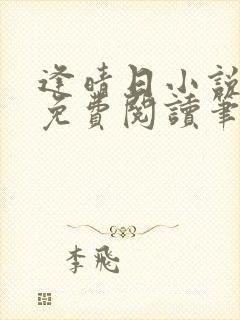 逢晴日小說
免費閱讀筆
李飛